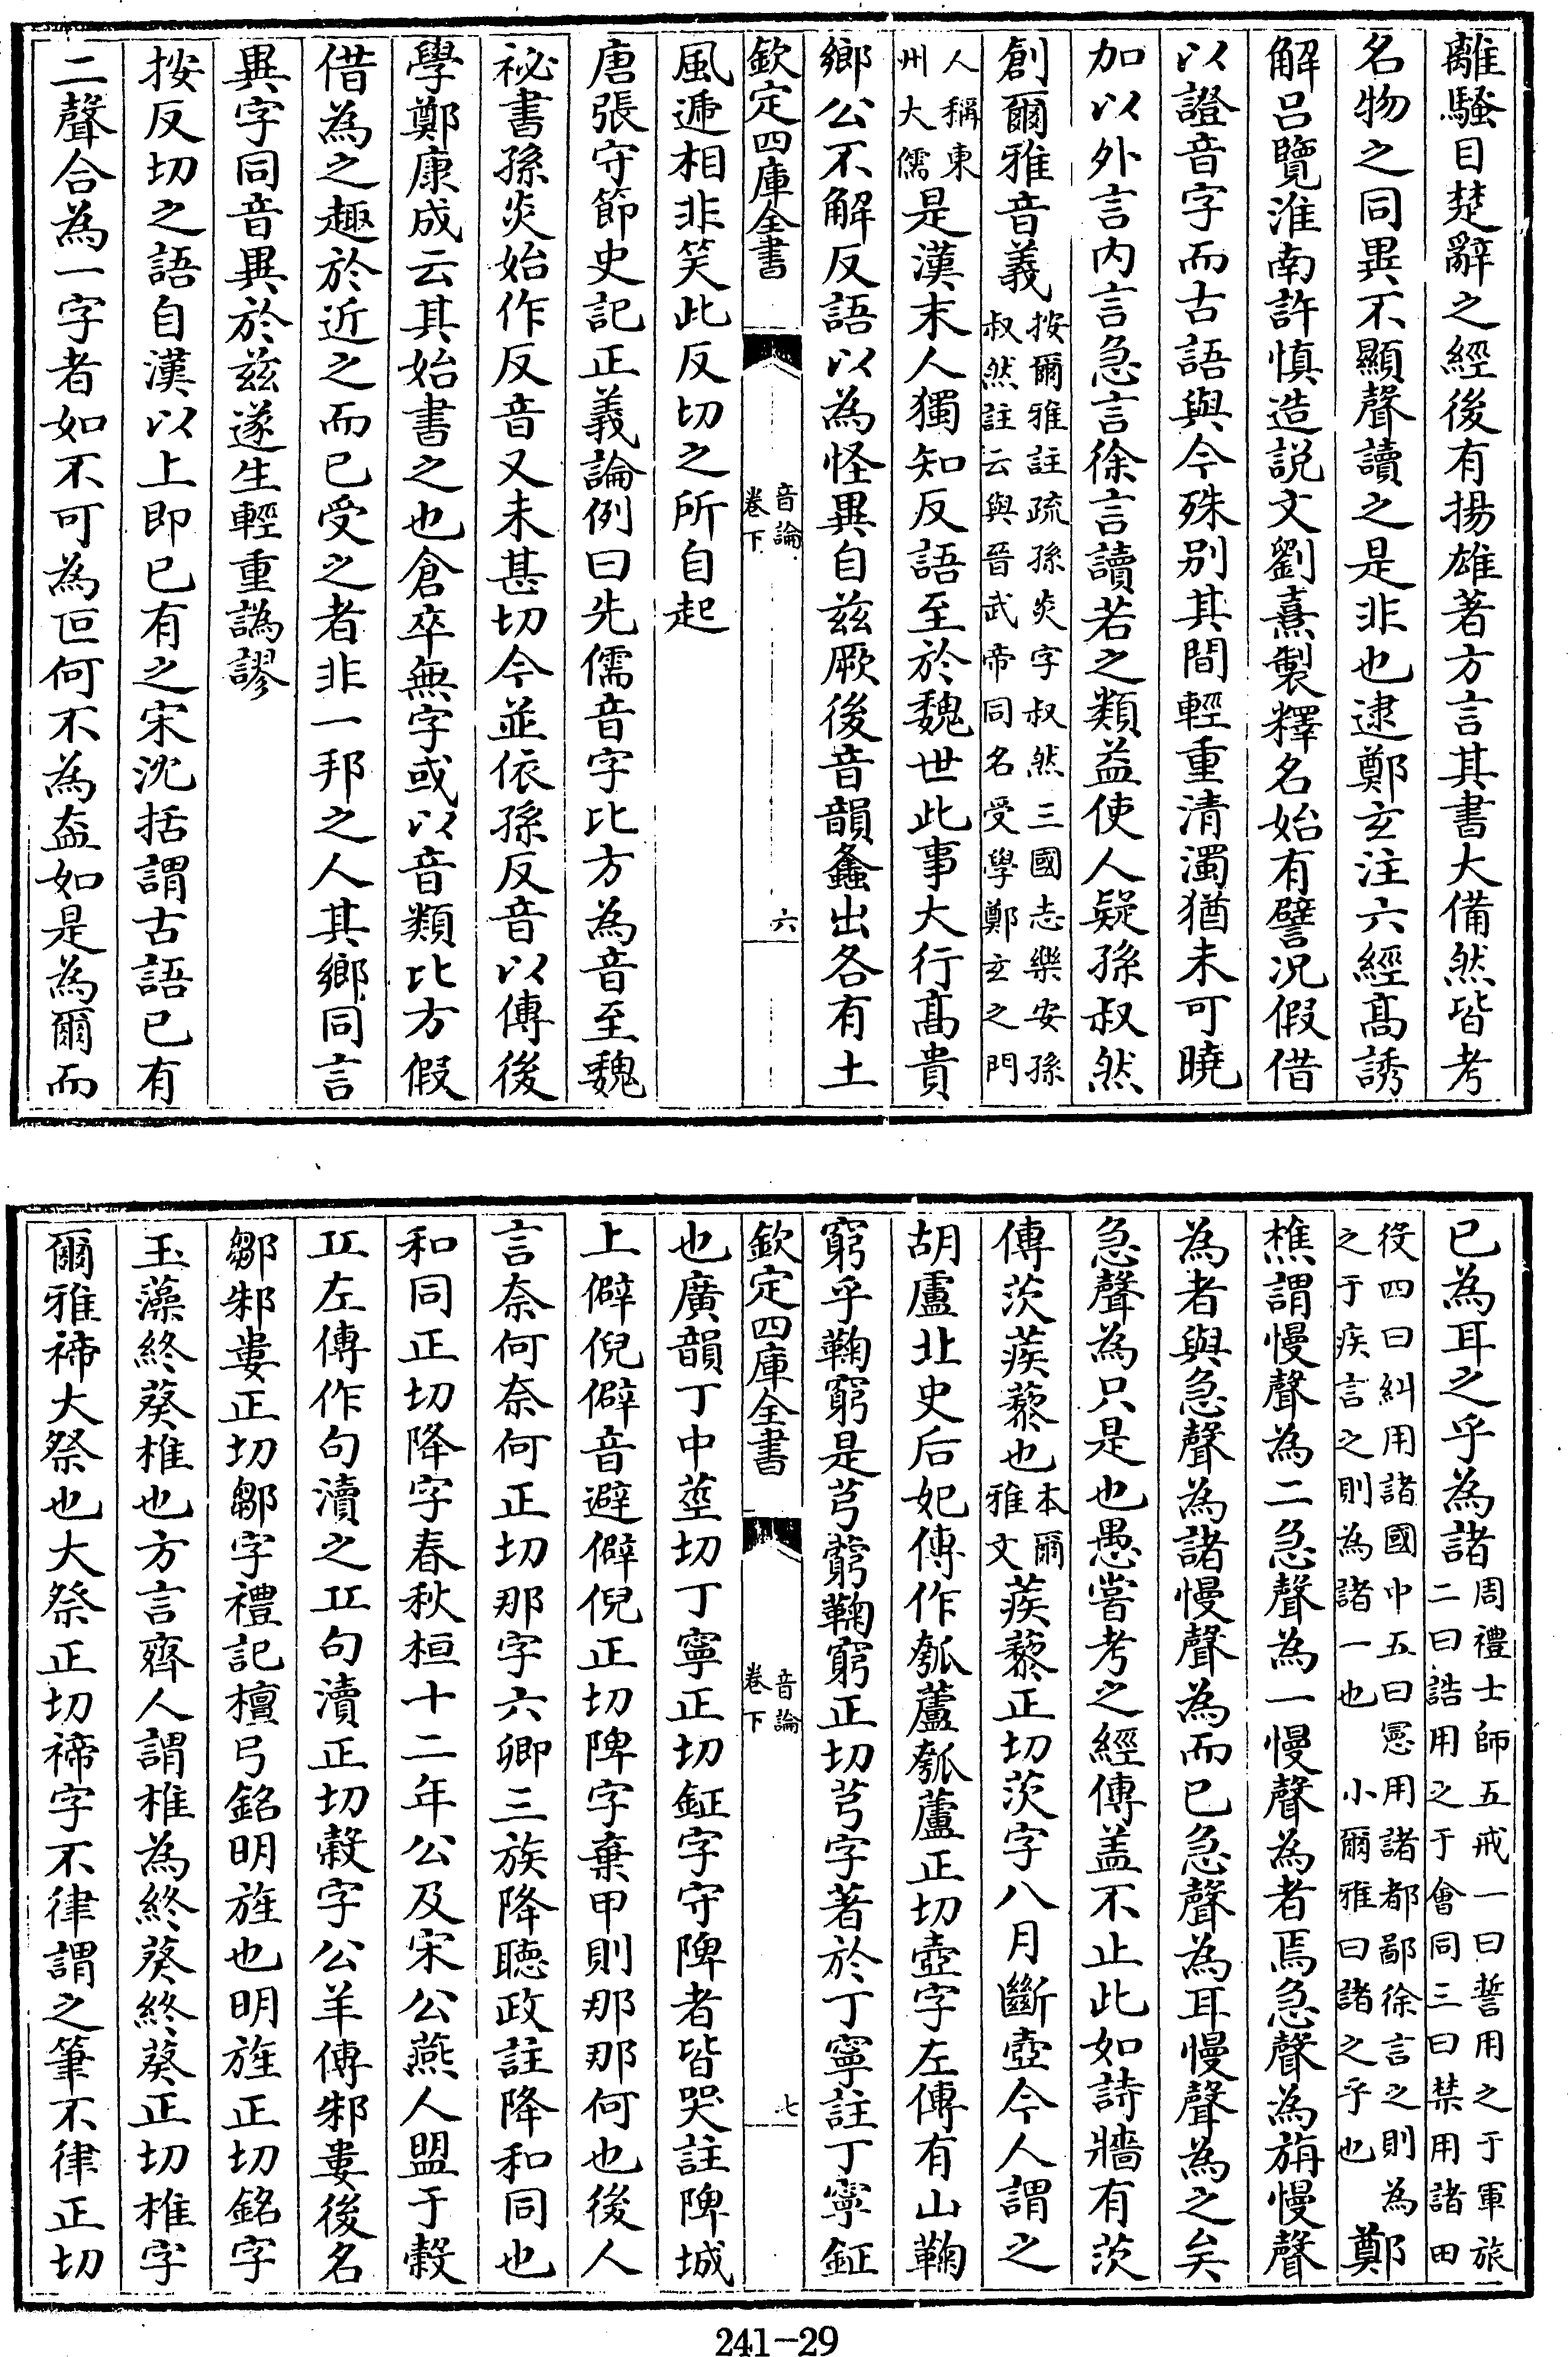 離騷目楚辭之經後有揚雄著方言其書大備然皆考
名物之同異不顯聲讀之是非也逮鄭玄注六經髙誘
解呂覽淮南許慎造説文劉熹製釋名始有譬况假借
以證音字而古語與今殊别其間輕重清濁猶未可曉
加以外言内言急言徐言讀若之類益使人疑孫叔然
創爾雅音義按爾雅註疏孫炎字叔然三國志樂安孫
叔然註云與晉武帝同名受學鄭玄之門
人稱東
州大儒是漢末人獨知反語至於魏世此事大行髙貴
鄉公不解反語以為怪異自兹厥後音韻蠭出各有土
欽定四庫全書
音論
卷下
六
風遞相非笑此反切之所自起
唐張守節史記正義論例曰先儒音字比方為音至魏
祕書孫炎始作反音又未甚切今並依孫反音以傳後
學鄭康成云其始書之也倉卒無字或以音類比方假
借為之趣於近之而已受之者非一邦之人其鄉同言
異字同音異於兹遂生輕重譌謬
按反切之語自漢以上即已有之宋沈括謂古語已有
二聲合為一字者如不可為叵何不為盍如是為爾而
已為耳之乎為諸周禮士師五戒一曰誓用之于軍旅
二曰誥用之于會同三曰禁用諸田
役四曰糾用諸國中五曰憲用諸都鄙徐言之則為
之于疾言之則為諸一也 小爾雅曰諸之乎也鄭
樵謂慢聲為二急聲為一慢聲為者焉急聲為旃慢聲
為者與急聲為諸慢聲為而已急聲為耳慢聲為之矣
急聲為只是也愚嘗考之經傳盖不止此如詩牆有茨
傳茨蒺藜也本爾
雅文蒺藜正切茨字八月斷壺今人謂之
胡盧北史后妃傳作瓠蘆瓠蘆正切壺字左傳有山鞠
窮乎鞠窮是芎藭鞠窮正切芎字著於丁寧註丁寧鉦
欽定四庫全書
音論
卷下
七
也廣韻丁中莖切丁寧正切鉦字守陴者皆哭註陴城
上僻倪僻音避僻倪正切陴字棄甲則那那何也後人
言奈何奈何正切那字六卿三族降聽政註降和同也
和同正切降字春秋桓十二年公及宋公燕人盟于穀
丘左傳作句瀆之丘句瀆正切穀字公羊傳邾婁後名
鄒邾婁正切鄒字禮記檀弓銘明旌也明旌正切銘字
玉藻終葵椎也方言齊人謂椎為終葵終葵正切椎字
爾雅禘大祭也大祭正切禘字不律謂之筆不律正切
241-29